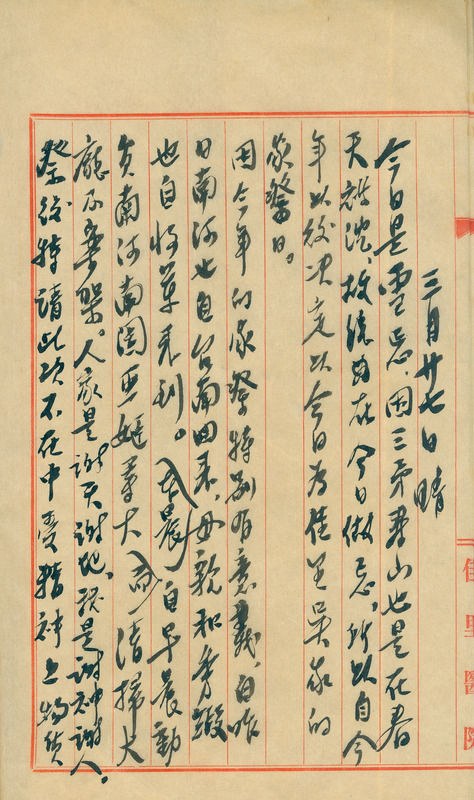 三月廿七日 晴
今日是雪忌因三弟壽山也是在春
天被沈,故緣由在今日做忌,所以自今
年以後決定以今日為佳里吳家的
家祭日。
因今年的家祭特別有意義,自昨
日南河也自台南回來,母親和秀緞
也自將軍來到。(本晨)自早晨動
員南河南圖亞姬羣大(而)清掃大
廳不棄架。人家是謝天謝地,我是謝神謝人。
祭後特請此次不在中受精神上物質
佳里醫院